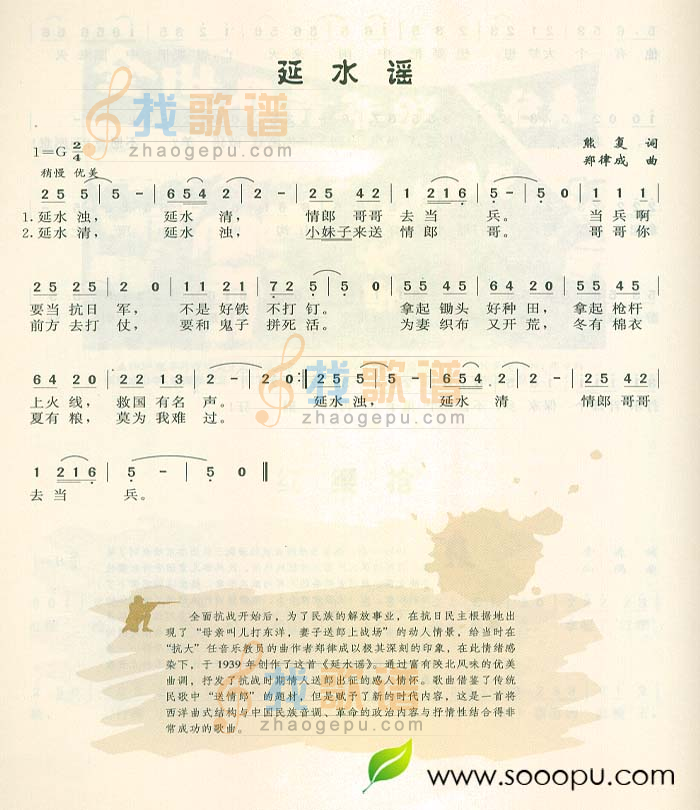 延水谣
找歌谱
zhaogepu.com
1=G 2/4
熊复 词
郑律成 曲
稍慢 优美
2 5 5 | 5 - | 6 5 4 2 | 2 - | 25 42 | 1 216 | 5 - | 5 0 | 1 1 1 |
1.延水浊, 延水清, 情郎哥哥去当兵。 当兵啊
2.延水清, 延水浊, 小妹子来送情郎哥。 哥哥你
25 25 | 2 0 | 11 21 | 72 5 | 5 0 | 55 45 | 2 5 2 | 55 45 |
要当抗日军, 不是好铁不打钉。 拿起锄头好种田, 拿起枪杆
前方去打仗, 要和鬼子拼死活。 为妻织布又开荒, 冬有棉衣
64 20 | 22 13 | 2 - | 2 0 :| 2 5 5 | 5 - | 6 5 4 2 | 2 - | 25 42 |
上火线, 救国有名声。 延水浊, 延水清 情郎哥哥
夏有粮, 莫为我难过。
找歌谱
zhaogepu.com
1 216 | 5 - | 5 0 ‖
去当兵。
全面抗战开始后,为了民族的解放事业,在抗日民主根据地出
现了“母亲叫儿打东洋,妻子送郎上战场”的动人情景,给当时在
“抗大”任音乐教员的曲作者郑律成以极其深刻的印象,在此情绪感
染下,于1939年创作了这首《延水谣》。通过富有陕北风味的优美
曲调,抒发了抗战时期情人送郎出征的感人情怀。歌曲借鉴了传统
民歌中“送情郎”的题材,但是赋予了新的时代内容,这是一首将
西洋曲式结构与中国民族音调、革命的政治内容与抒情性结合得非
常成功的歌曲。
找歌谱
zhaogepu.com
www.sooopu.com